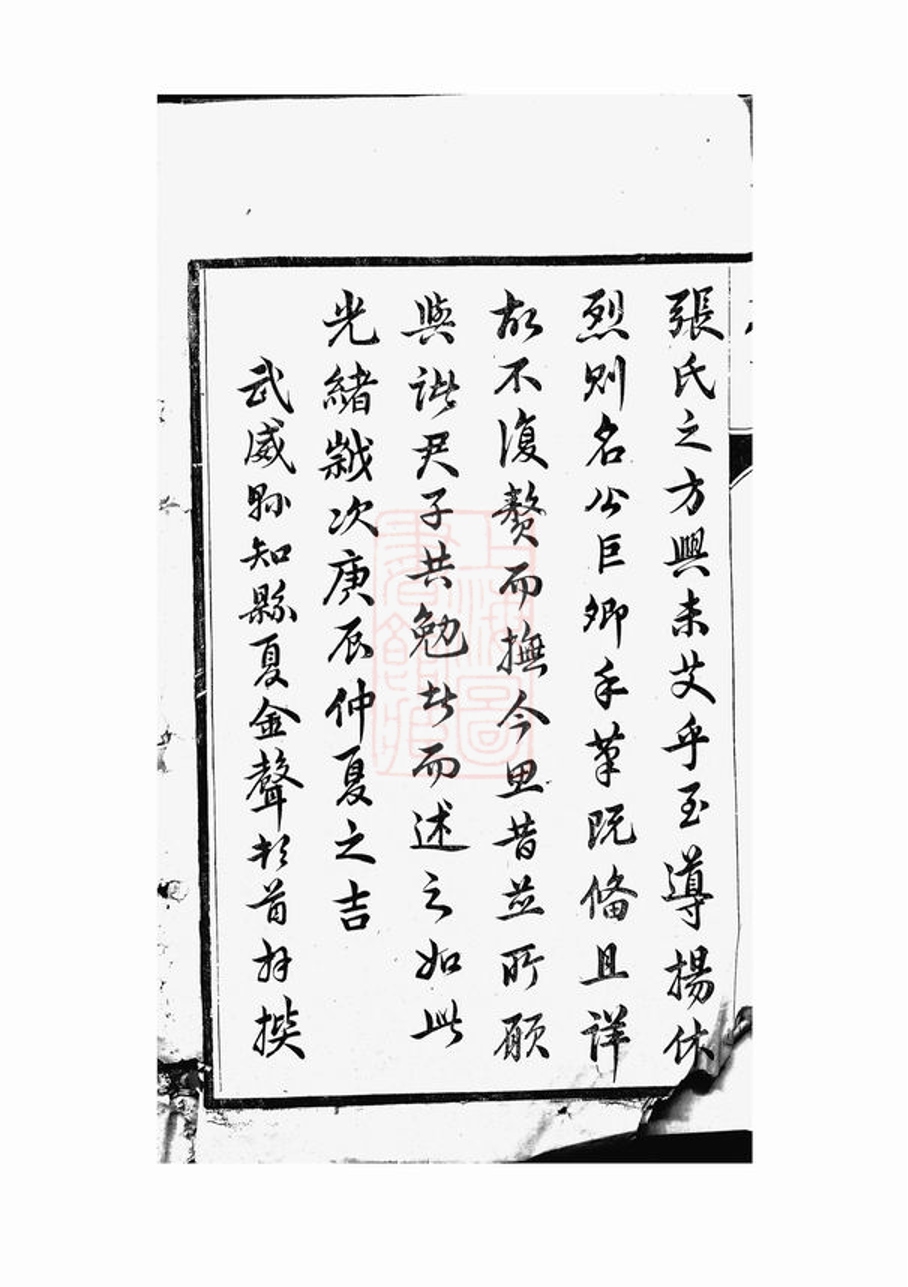 張氏之方興未艾乎至導揚休
烈則名公巨卿手筆既備且詳
故不復贅而撫今思昔並所願
與諸君子共勉者而述之如此
光緒歲次庚辰仲夏之吉
武威縣知縣夏金聲頓首拜撰
上海圖
書館藏